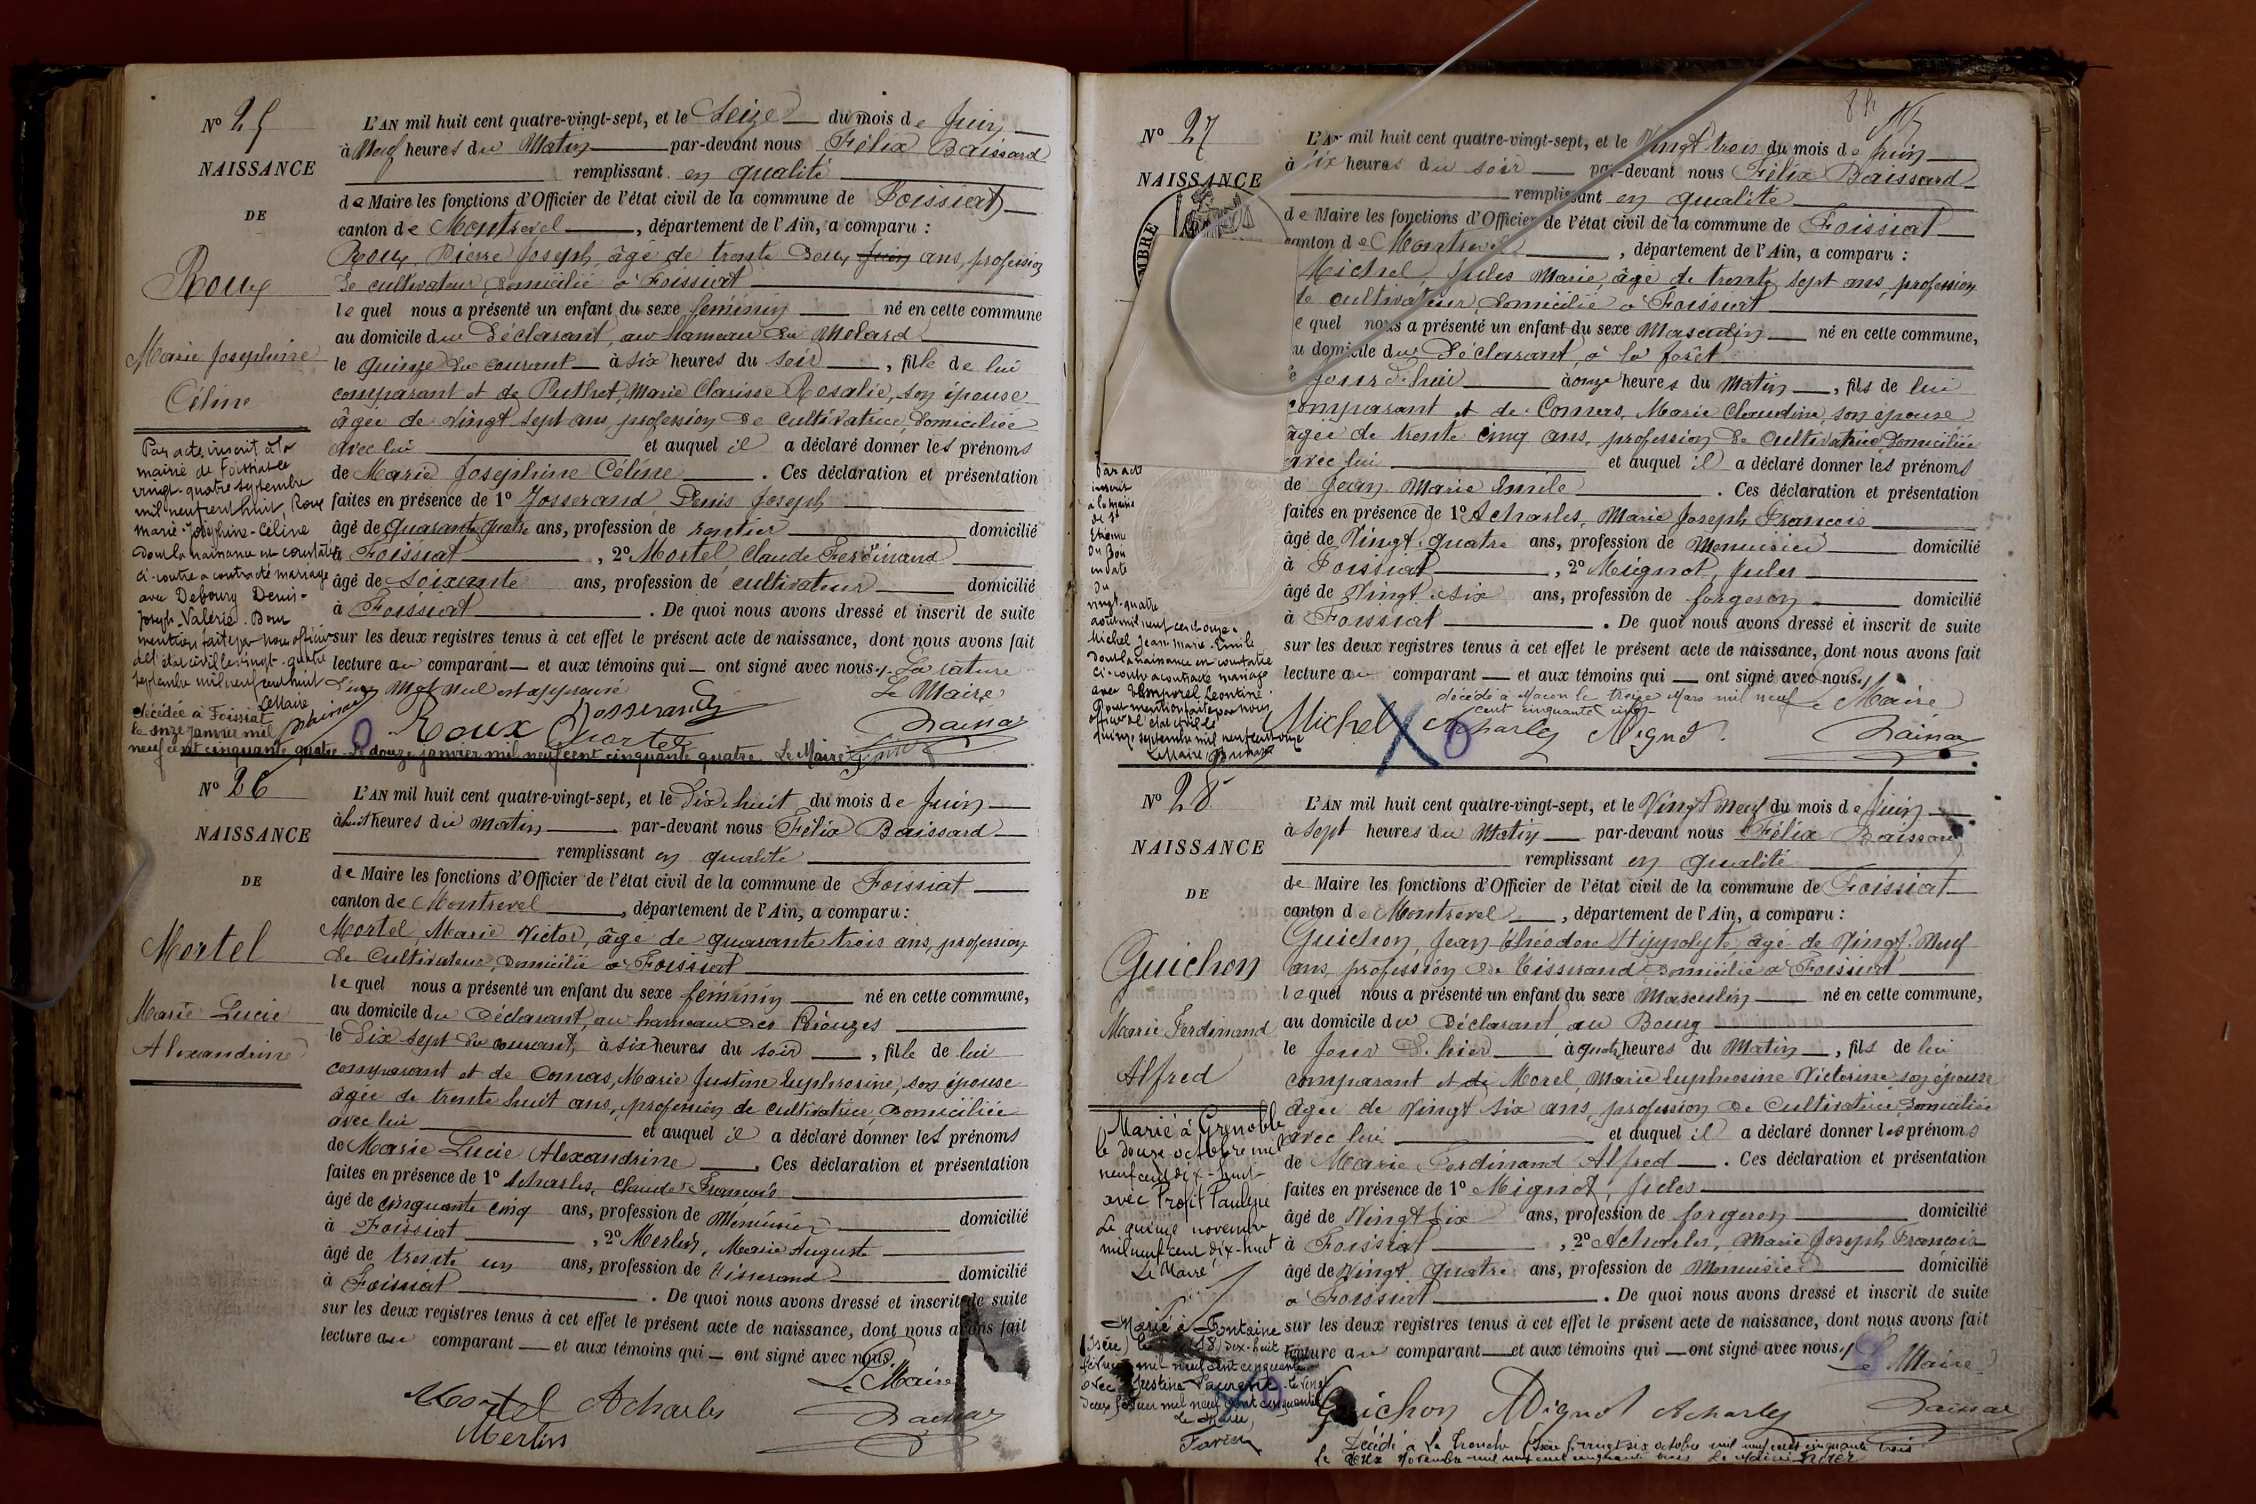 N° 25
NAISSANCE
DE
Roux
Marie Joséphine
Céline
Par acte inscrit à la
mairie de Foissiat le
vingt-quatre septembre
mil neuf cent huit, Roux
Marie-Joséphine-Céline
dont la naissance est constatée
ci-contre a contracté mariage
avec Debourg Denis-
Joseph-Valérie. Dont
mention faite par nous officier
de l'état civil le vingt-quatre
septembre mil neuf cent huit
Le Maire
décédée à Foissiat
le onze janvier mil
neuf cent cinquante quatre. Le douze janvier mil neuf cent cinquante quatre. Le Maire
L'AN mil huit cent quatre-vingt-sept, et le Seize du mois de Juin
à Neuf heures du Matin par-devant nous Félix Baissard
remplissant en qualité
de Maire les fonctions d'Officier de l'état civil de la commune de Foissiat
canton de Montrevel, département de l'Ain, a comparu :
Roux, Pierre Joseph, âgé de trente deux Juin ans, profession
de cultivateur, domicilié à Foissiat
lequel nous a présenté un enfant du sexe féminin né en cette commune
au domicile du Déclarant, au hameau du Molard
le quinze du courant à six heures du soir, fille de lui
comparant et de Puthet, Marie Clarisse Rosalie, son épouse
âgée de vingt sept ans, profession de cultivatrice, domiciliée
avec lui et auquel il a déclaré donner les prénoms
de Marie Joséphine Céline. Ces déclaration et présentation
faites en présence de 1° Josserand, Denis Joseph
âgé de quarante quatre ans, profession de rentier domicilié
à Foissiat, 2° Mortel, Claude Ferdinand
âgé de soixante ans, profession de cultivateur domicilié
à Foissiat. De quoi nous avons dressé et inscrit de suite
sur les deux registres tenus à cet effet le présent acte de naissance, dont nous avons fait
lecture au comparant et aux témoins qui ont signé avec nous. La rature
d'un mot nul est approuvé
Le Maire
Roux Josserand Mortel
N° 26
NAISSANCE
DE
Mortel
Marie Lucie
Alexandrine
L'AN mil huit cent quatre-vingt-sept, et le Dix-huit du mois de Juin
à huit heures du Matin par-devant nous Félix Baissard
remplissant en qualité
de Maire les fonctions d'Officier de l'état civil de la commune de Foissiat
canton de Montrevel, département de l'Ain, a comparu :
Mortel, Marie Victor, âgé de quarante trois ans, profession
de Cultivateur, domicilié à Foissiat
lequel nous a présenté un enfant du sexe féminin né en cette commune,
au domicile du Déclarant, au hameau des
le Dix sept du courant, à six heures du soir, fille de lui
comparant et de Comas, Marie Justine Euphrosine, son épouse
âgée de trente huit ans, profession de cultivatrice domiciliée
avec lui et auquel il a déclaré donner les prénoms
de Marie Lucie Alexandrine. Ces déclaration et présentation
faites en présence de 1° Acharles, Claude François
âgé de cinquante cinq ans, profession de Menuisier domicilié
à Foissiat, 2° Merlin, Marie Auguste
âgé de trente un ans, profession de tisserand domicilié
à Foissiat. De quoi nous avons dressé et inscrit de suite
sur les deux registres tenus à cet effet le présent acte de naissance, dont nous avons fait
lecture au comparant et aux témoins qui ont signé avec nous.
Le Maire
Mortel Acharles
Merlin
N° 27
NAISSANCE
MBRE
Par acte
inscrit
à la mairie
de St
Etienne
du Bois
en date
du
vingt-quatre
août mil neuf cent onze
Michel Jean Marie Emile
dont la naissance est constatée
ci-contre a contracté mariage
avec Temporel Léontine.
Dont mention faite par nous
officier de l'état civil le
quinze septembre mil neuf cent onze
Le Maire
L'AN mil huit cent quatre-vingt-sept, et le Vingt trois du mois de Juin
à six heures du soir par-devant nous Félix Baissard
remplissant en qualité
de Maire les fonctions d'Officier de l'état civil de la commune de Foissiat
canton de Montrevel, département de l'Ain, a comparu :
Michel, Jules Marie, âgé de trente sept ans, profession
de cultivateur, domicilié à Foissiat
lequel nous a présenté un enfant du sexe Masculin né en cette commune,
au domicile du Déclarant, à la forêt
le jour d'hui à onze heures du Matin, fils de lui
comparant et de Comas, Marie Claudine, son épouse
âgée de trente cinq ans, profession de Cultivatrice, domiciliée
avec lui et auquel il a déclaré donner les prénoms
de Jean Marie Emile. Ces déclaration et présentation
faites en présence de 1° Acharles, Marie Joseph François
âgé de Vingt quatre ans, profession de Menuisier domicilié
à Foissiat, 2° Mignot, Jules
âgé de Vingt six ans, profession de forgeron domicilié
à Foissiat. De quoi nous avons dressé et inscrit de suite
sur les deux registres tenus à cet effet le présent acte de naissance, dont nous avons fait
lecture au comparant et aux témoins qui ont signé avec nous.
décédé à Macon le treize Mars mil neuf
cent cinquante cinq
Le Maire
Michel Acharles Mignot
N° 28
NAISSANCE
DE
Guichon
Marie Ferdinand
Alfred
Marié à Grenoble
le douze octobre mil
neuf cent dix-huit
avec Profit Pauline
Le quinze novembre
mil neuf cent dix-huit
Le Maire
Marié à Fontaine
(Isère) le (18) dix-huit
février mil neuf cent cinquante
avec
deux février mil neuf cent cinquante
Le Maire,
L'AN mil huit cent quatre-vingt-sept, et le Vingt Neuf du mois de Juin
à sept heures du Matin par-devant nous Félix Baissard
remplissant en qualité
de Maire les fonctions d'Officier de l'état civil de la commune de Foissiat
canton de Montrevel, département de l'Ain, a comparu :
Guichon, Jean Théodore Hippolyte, âgé de Vingt Neuf
ans, profession de tisserand domicilié à Foissiat
lequel nous a présenté un enfant du sexe Masculin né en cette commune,
au domicile du Déclarant au Bourg
le Jour d'hier à quatre heures du Matin, fils de lui
comparant et de Morel, Marie Euphrosine Victorine son épouse
âgée de Vingt six ans, profession de Cultivatrice, domiciliée
avec lui et auquel il a déclaré donner les prénoms
de Marie Ferdinand Alfred. Ces déclaration et présentation
faites en présence de 1° Mignot, Jules
âgé de Vingt Six ans, profession de forgeron domicilié
à Foissiat, 2° Acharles, Marie Joseph François
âgé de Vingt quatre ans, profession de Menuisier domicilié
à Foissiat. De quoi nous avons dressé et inscrit de suite
sur les deux registres tenus à cet effet le présent acte de naissance, dont nous avons fait
lecture au comparant et aux témoins qui ont signé avec nous.
Le Maire
Guichon Mignot Acharles
Décédé à La Tronche (Isère) le vingt six octobre mil neuf cent cinquante trois
le deux Novembre mil neuf cent cinquante trois Le Maire